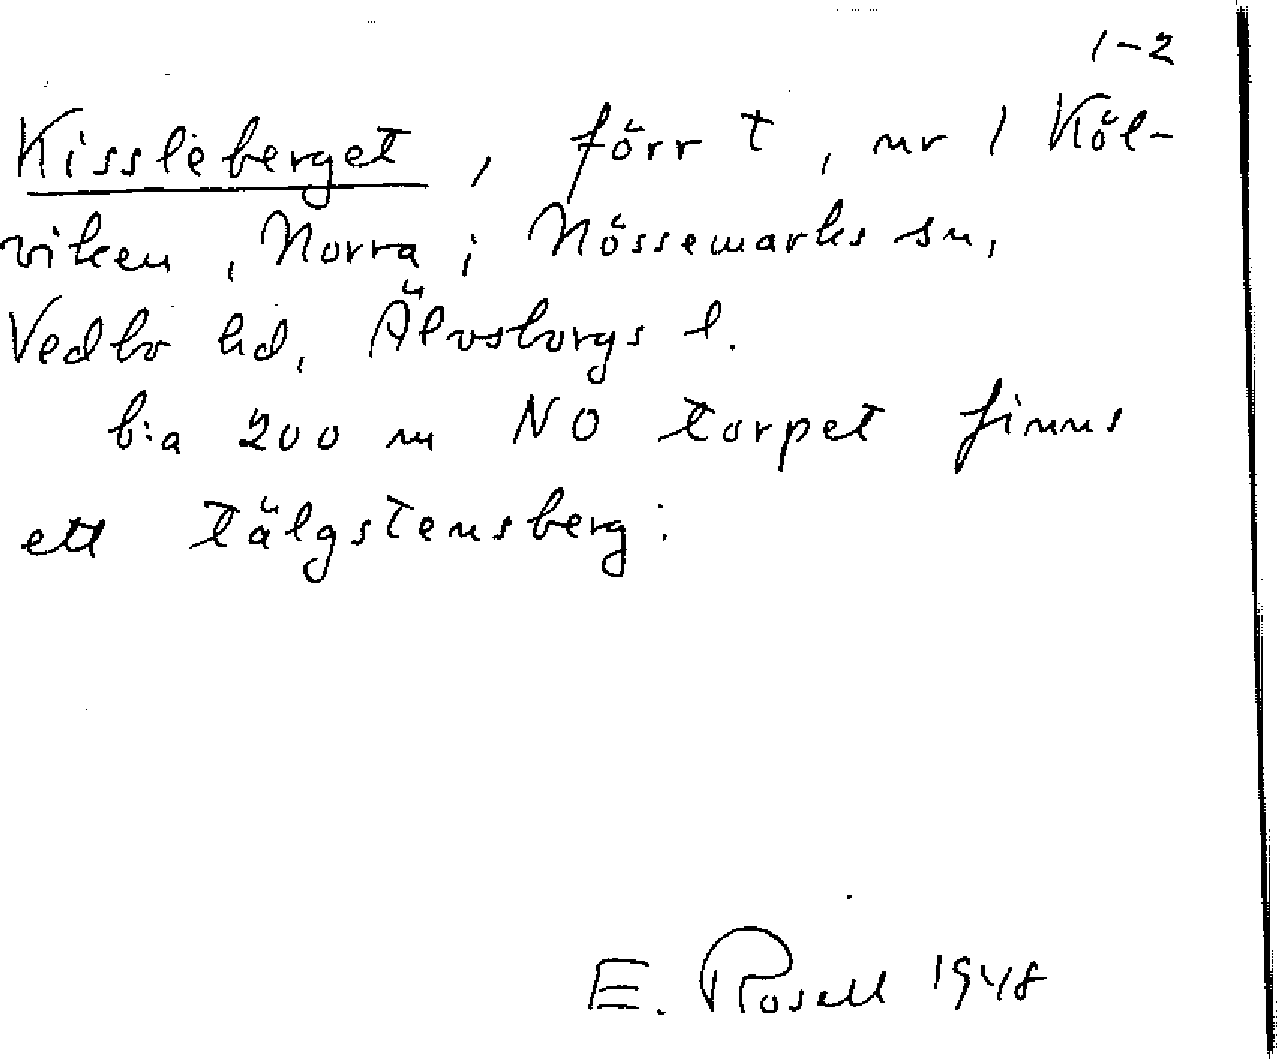 1-2
Kissleberget, förr t, nr 1 Köl-
viken, Norra; Nössemarks sn,
Vedbo hd, Älvsborgs l.
b:a 200 m NO torpet finns
ett tälgstensberg.
E. Rosell 1948